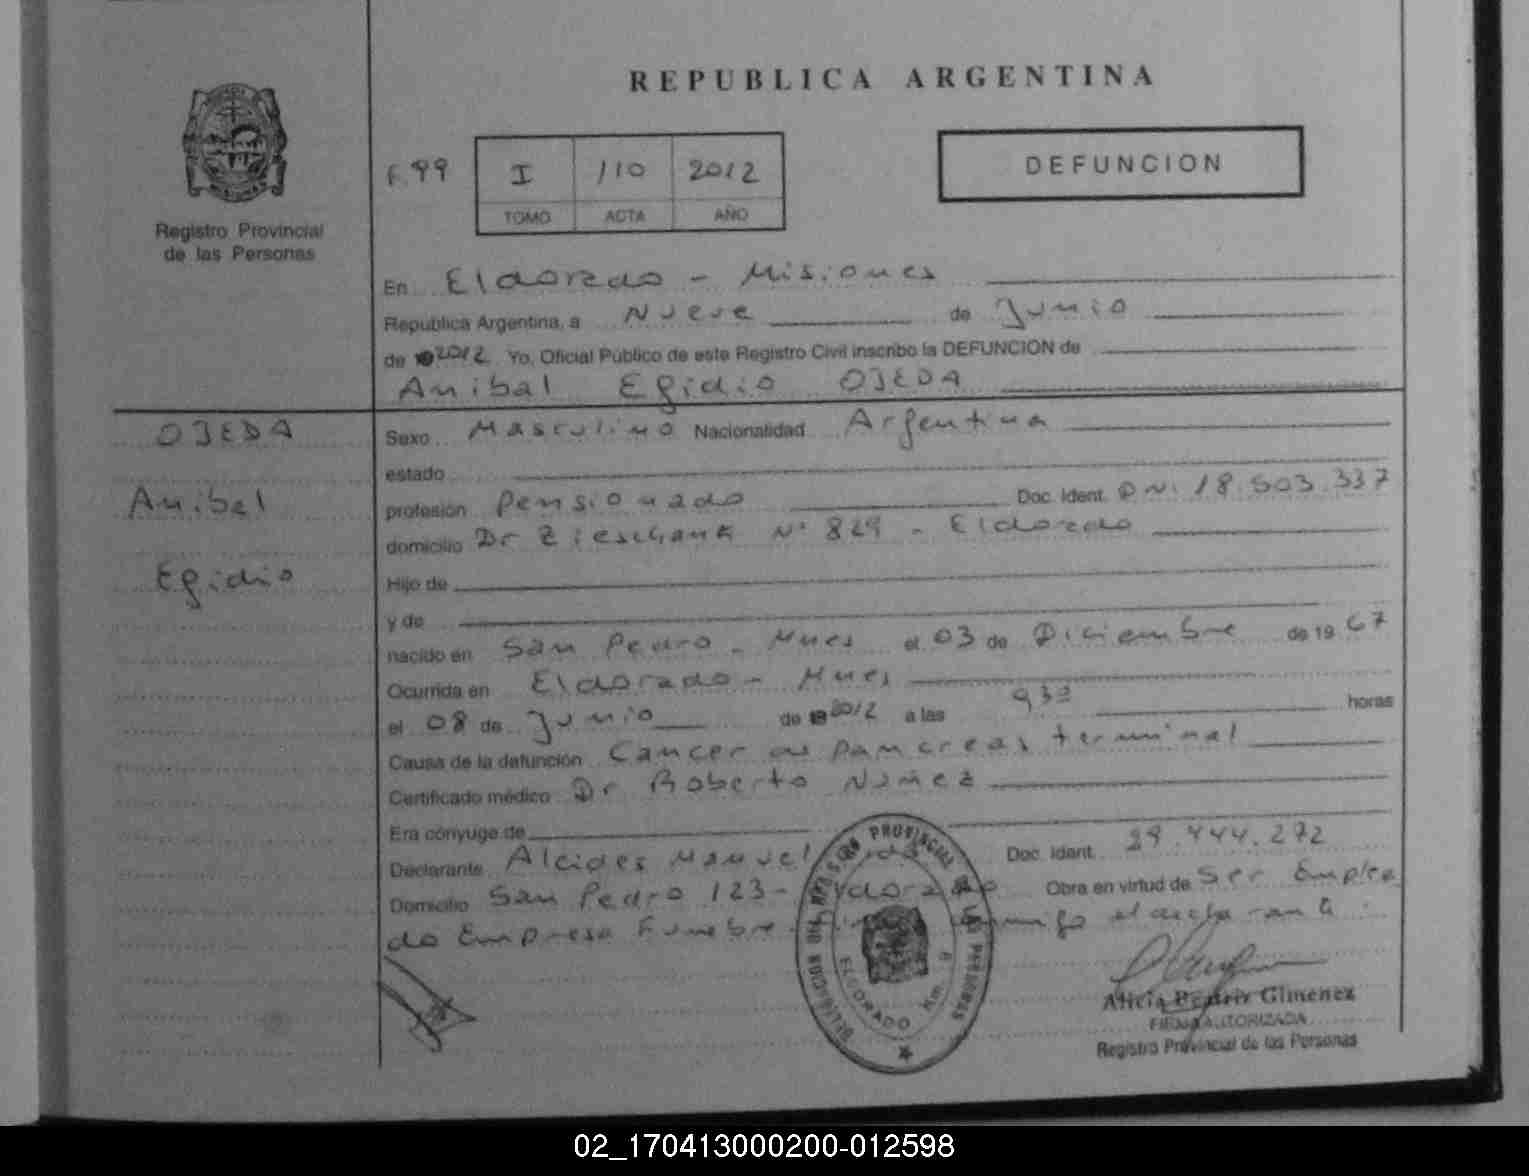 REPUBLICA ARGENTINA
F. 99
I 110 2012
TOMO ACTA AÑO
DEFUNCION
Registro Provincial
de las Personas
En Eldorado - Misiones
Republica Argentina, a Nueve de Junio
de 2012 Yo, Oficial Público de este Registro Civil inscribo la DEFUNCION de
Anibal Egidio OJEDA
OJEDA
Anibal
Egidio
Sexo Masculino Nacionalidad Argentina
estado
profesión Pensionado Doc. Ident. DNI 18.503.337
domicilio Dr Zieschank N° 829 - Eldorado
Hijo de
y de
nacido en San Pedro - Mnes el 03 de Diciembre de 1967
Ocurrida en Eldorado - Mnes
el 08 de Junio de 2012 a las 9 30 horas
Causa de la defunción Cancer de pancreas terminal
Certificado médico Dr Roberto Nuñez
Era cónyuge de
Declarante Alcides Manuel Doc. Ident. 29.444.272
Domicilio San Pedro 123 - Eldorado Obra en virtud de Ser Emplea
do Empresa Funebre. el declarante
DELEGACION DEL REGISTRO PROVINCIAL DE LAS PERSONAS
ELDORADO Km. 9
Alicia Beatriz Gimenez
FIRMA AUTORIZADA
Registro Provincial de las Personas
02_170413000200-012598